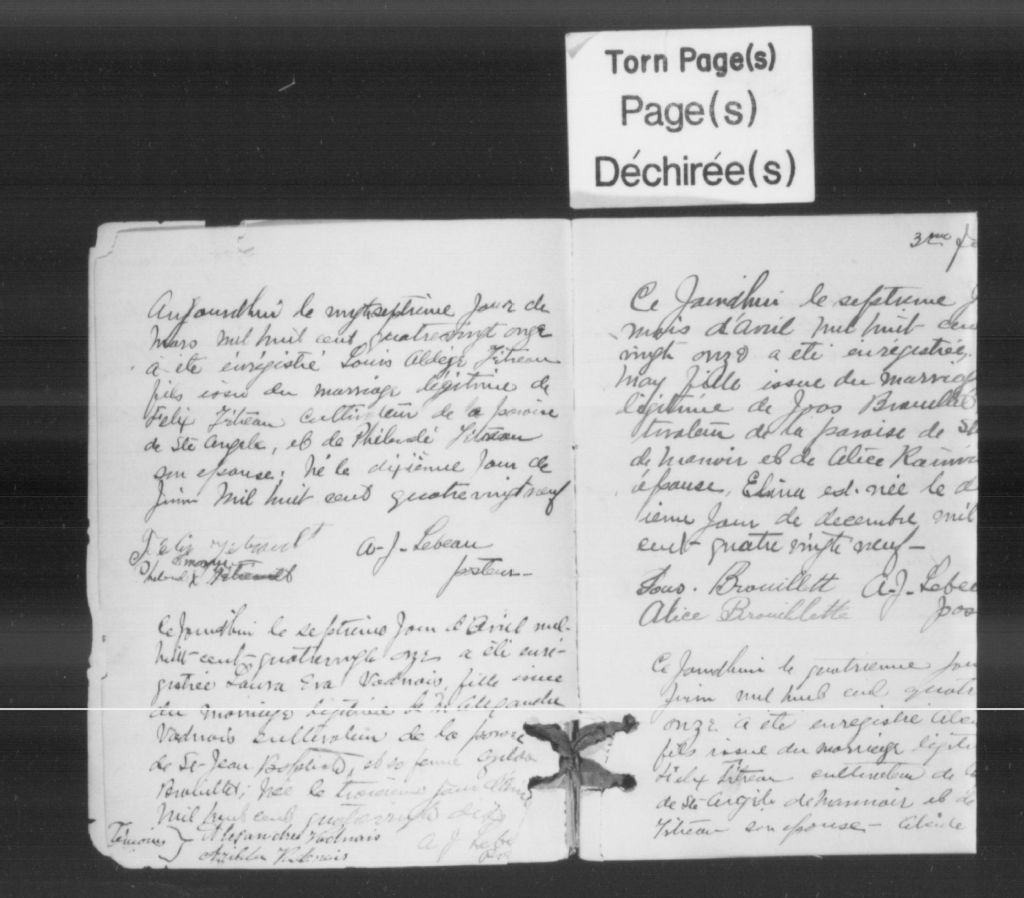 Torn Page(s)
Page(s)
Déchirée(s)
Aujourdhui le vingtseptieme jour de
Mars Mil huit cent quatrevingt onze
à été énrégistré Louis
fils issu du marriage légitime de
Felix cultivateur de la paroise
de Ste Angele, et de
son epouse. Né le dixième Jour de
Juin Mil huit cent quatrevingt neuf
Felix
A-J-Lebeau
pasteur-
Ce Jourdhui le septieme Jour d'Avril mil-
huit-cent-quatrevingt onze a été enre-
gistrée Laura Eva Vadnais, fille issue
du marriage légitime de Alexandre
Vadnais cultivateur de la paroise
de St-Jean Baptiste, et sa femme
Née le troisieme jour
Mil huit cent quatrevingt dix
Témoins } Alexandre Vadnais
Vadnais
A J Lebe
3me
Ce Jourdhui le septieme J
mois d'Avril Mil huit cen
vingt onze a eté enregistrée,
May fille issue du marriag
légitime de Brouillet
tivateur de la paroise de St
de Manoir et de Alice Rainvi
epouse, Elina est née le d
ieme Jour de decembre mil
cent-quatre vingte neuf-
Brouillett A-J-Lebea
Alice Brouillette pas
Ce Jourdhui le quatrieme jou
juin mil huit cent quatr
onze à eté enregistré
fils issue du marriage légiti
Felix cultivateur de
de Ste-Angele de Mannoir et de
son epouse-